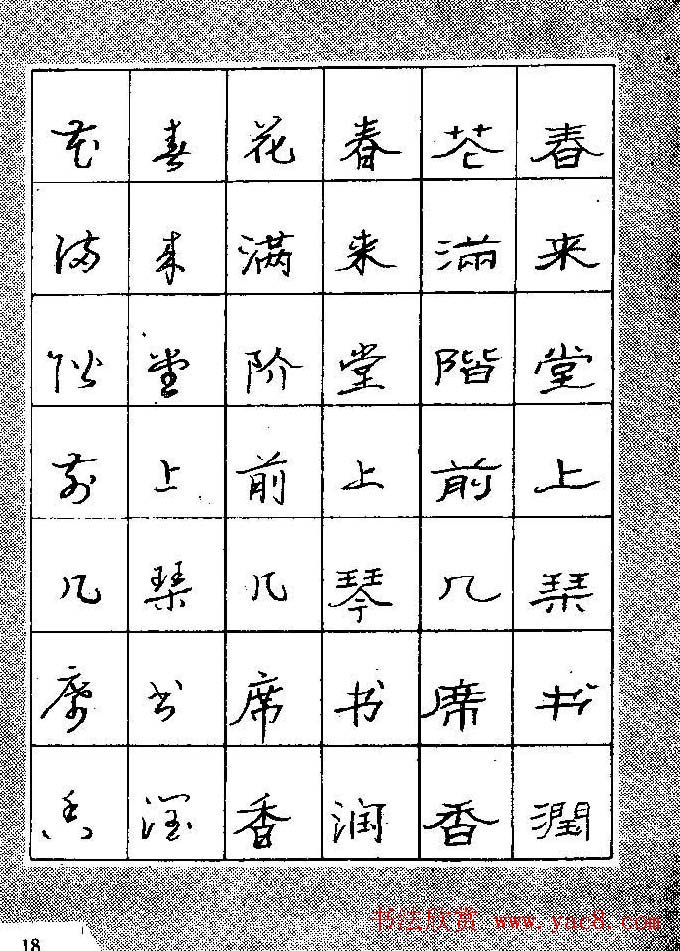 春来堂上琹书潤
花滿階前几席香
春来堂上琴书润
花满阶前几席香
春来堂上琹书润
花满阶前几席香
书法欣赏 www.yac8.com
18